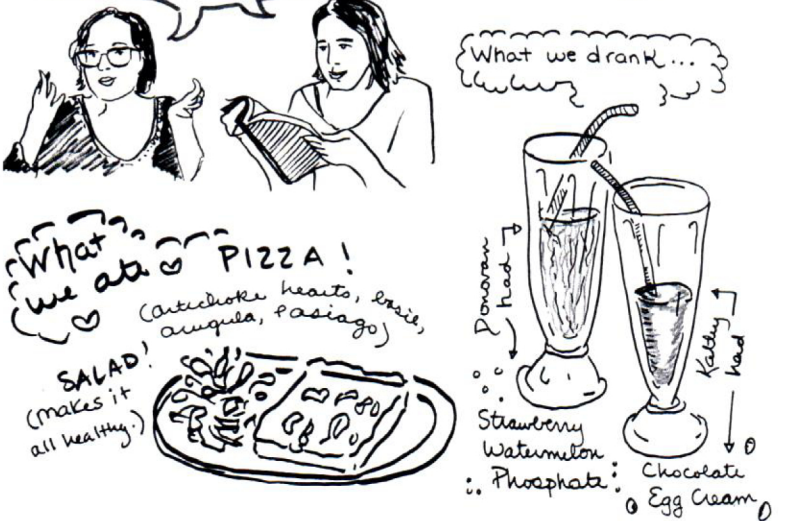 What we drank...
What
we ate
PIZZA!
(artichoke hearts, basil,
arugula, & asiago)
SALAD!
(makes it
all healthy.)
Donovan
had
Kathy
had
Strawberry
Watermelon
Phosphate
Chocolate
Egg Cream